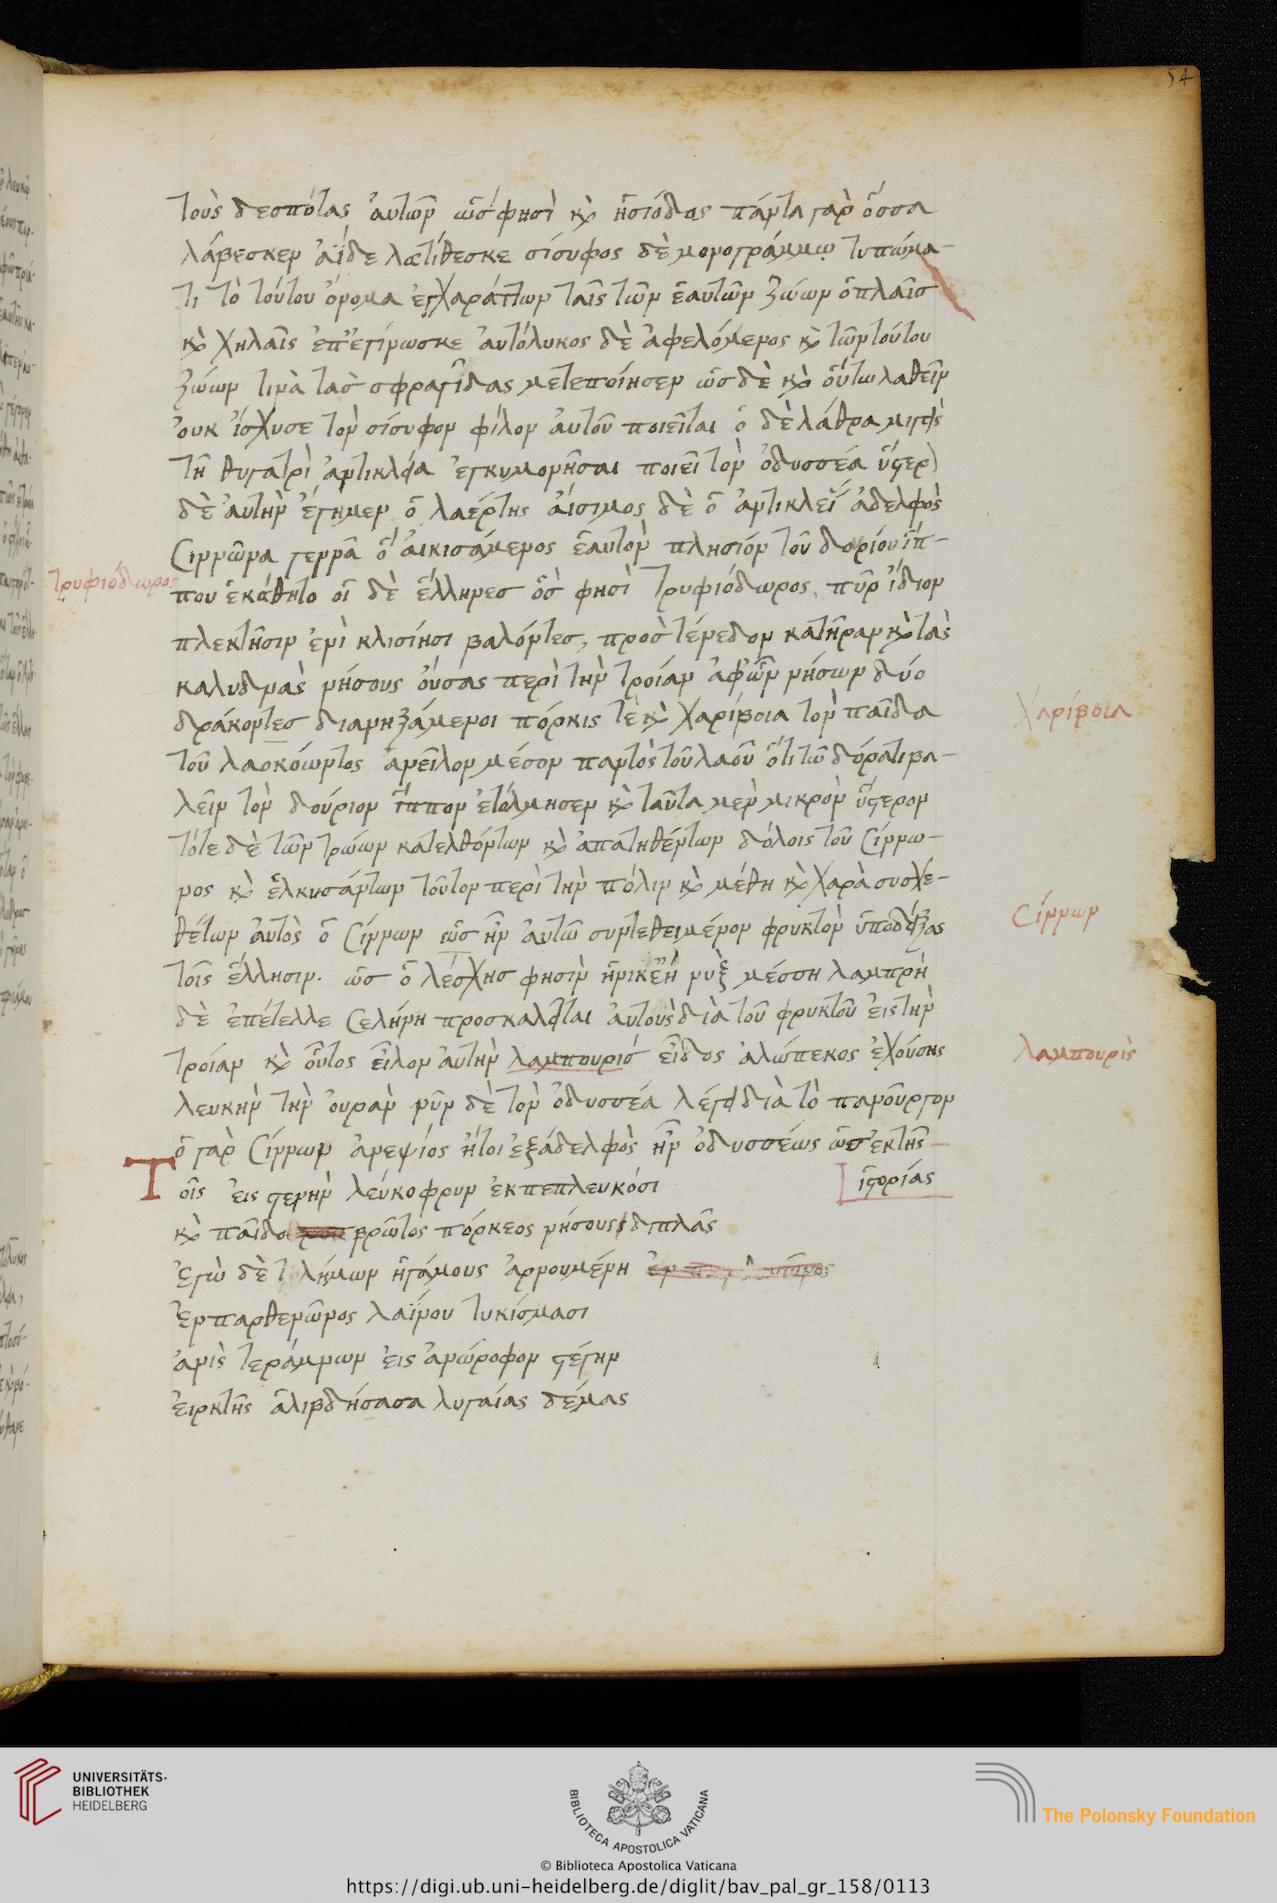 54
τοὺς δεσπότας αὐτῶν ὥς φησὶ καὶ ἡσιόδος πάντα γὰρ ὅσσα
λάβεσκεν ἀΐδελα τίθεσκε σίσυφος δὲ μονογράμμῳ τυπώμα-
τι τὸ τούτου ὄνομα ἐγχαράττων ταῖς τῶν ἑαυτῶν ζώων ὁπλαῖς
καὶ χηλαῖς ἐπεγίνωσκε αὐτόλυκος δὲ ἀφελόμενος καὶ τῶν τούτου
ζώων τινὰ τὰς σφραγῖδας μετεποίησεν ὡς δὲ καὶ οὕτω λαθεῖν
οὐκ ἴσχυσε τὸν σίσυφον φίλον αὐτοῦ ποιεῖται ὁ δὲ λάθρα μιγεὶς
τῇ θυγατρὶ ἀντικλεία ἐγκυμονῆσαι ποιεῖ τὸν ὀδυσσέα ὕστερ
δὲ αὐτὴν ἔγημεν ὁ λαέρτης αἴσιμος δὲ ὁ ἀντικλεί ἀδελφὸς
Σίννωνα γεννᾶ ὃ αἰκισάμενος ἑαυτὸν πλησίον τοῦ δουρίου ἵπ-
τρυφιόδωρος
που ἐκάθητο οἱ δὲ ἕλληνες ὥς φησὶ τρυφιόδωρος, πῦρ ἴδιον
πλεκτῆσιν ἐνὶ κλισίησι βαλόντες, πρὸς τένεδον κατῆραν καὶ τὰς
καλυδνὰς νήσους οὔσας περὶ τὴν τροίαν ἀφ' ὧν νήσων δύο
δράκοντες διανηξάμενοι πόρκις τὲ καὶ χαρίβοια τὸν παῖδα
χαρίβοια
τοῦ λαοκόωντος ἀνεῖλον μέσον παντὸς τοῦ λαοῦ ὅτι τῶ δόρατι βα-
λεῖν τὸν δούριον ἵππον ἐτόλμησεν καὶ ταῦτα μὲν μικρὸν ὕστερον
τότε δὲ τῶν τρώων κατελθόντων καὶ ἀπατηθέντων δόλοις τοῦ Σίννω-
νος καὶ ἑλκυσάντων τοῦτον περὶ τὴν πόλιν καὶ μέθη καὶ χαρὰ συσχε-
θέτων αὐτὸς ὁ Σίννων ὡς ἦν αὐτῶ συντεθειμένον φρυκτὸν ὑποδείξας
Σίννων
τοῖς ἕλλησιν. ὡς ὁ λέσχης φησὶν ἡνίκ' ἔην νὺξ μέσση λαμπρὴ
δὲ ἐπέτελλε Σελήνη προσκαλεῖται αὐτοὺς διὰ τοῦ φρυκτοῦ εἰς τὴν
τροίαν καὶ οὗτος εἷλον αὐτὴν λαμπουρὶς εἶδος ἀλώπεκος ἐχούσης
λαμπουρὶς
λευκὴν τὴν οὐρὰν νῦν δὲ τὸν ὀδυσσέα λέγει διὰ τὸ πανοῦργον
ὁ γὰρ Σίννων ἀνεψιός ἤτοι ἐξάδελφὸς ἦν ὀδυσσέως ὡς ἐκ τῆς
ἱστορίας
Τοῖς εἰς στενὴν λεύκοφρυν ἐκπεπλευκόσι
καὶ παιδο βρῶτος πόρκεος νήσους διπλᾶς
Ἐγὼ δὲ τλήμων ἡ γάμους ἀρνουμένη
Ἐν παρθενῶνος λαΐνου τυκίσμασι
ἄνις τεράμνων εἰς ἀνώροφον στέγην
εἱρκτῆς ἁλιβδήσασα λυγαίας δέμας
UNIVERSITÄTS-
BIBLIOTHEK
HEIDELBERG
BIBLIOTECA APOSTOLICA VATICANA
The Polonsky Foundation
© Biblioteca Apostolica Vaticana
https://digi.ub.uni-heidelberg.de/diglit/bav_pal_gr_158/0113